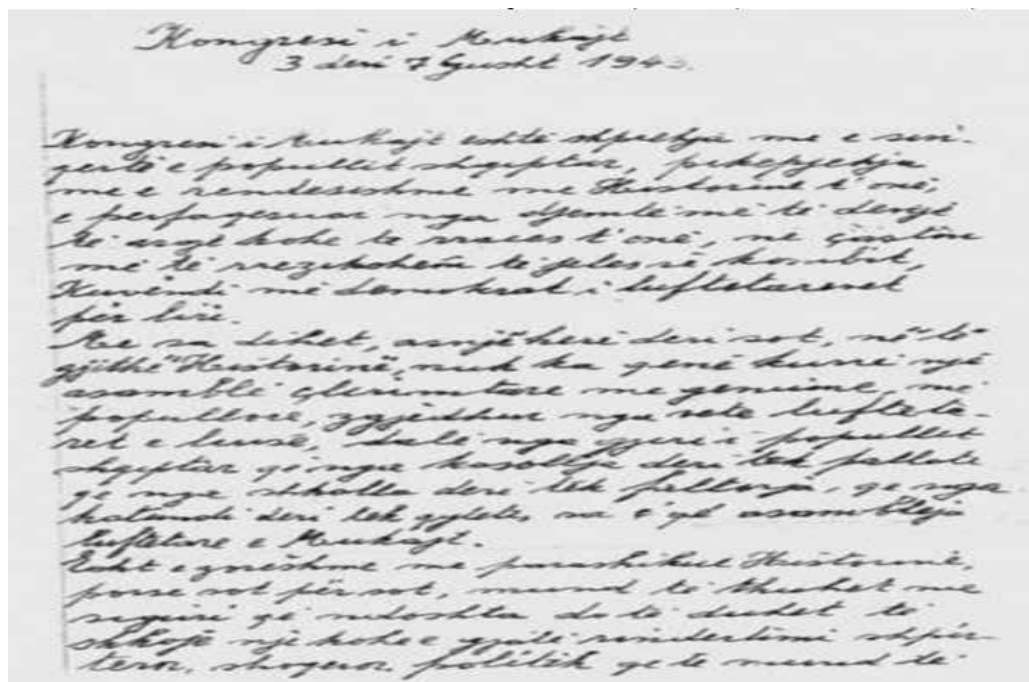 Kongresi i Mukajt
3 deri 7 Gusht 194
Kongresi i Mukajt eshtë shprehja me e sin-
qertë e popullit shqiptar, perpjekja
me e rendesishme me Historinë t'onë,
e perfaqesuar nga djemtë më të denjë
të asaj kohe te rraces t'onë, ne çastin
më të rrezikshem të jetes së kombit,
Kuvëndi më demokrat i luftetarevet
për liri.
Me sa dihet, asnjëherë deri sot, në të
gjithë Historinë, nuk ka qenë kurrë një
asamble çlirimtare me genuine, me
popullore, zgjedhur nga vete lufteta-
ret e lirisë, dalë nga gjiri i popullit
shqiptar qe nga kasollja deri tek pallati
qe nga shkolla deri tek fultorja, qe nga
katundi deri tek qyteti, sa t'qe asambleja
luftetare e Mukajt.
Esht e zorëshme me parashikue Historinë,
porse sot për sot, mund te thuhet me
siguri qe ndoshta do të duhet të
shkojë një kohe e gjatë rindertimi shpir-
teror, shoqeror, politik qe te mund të